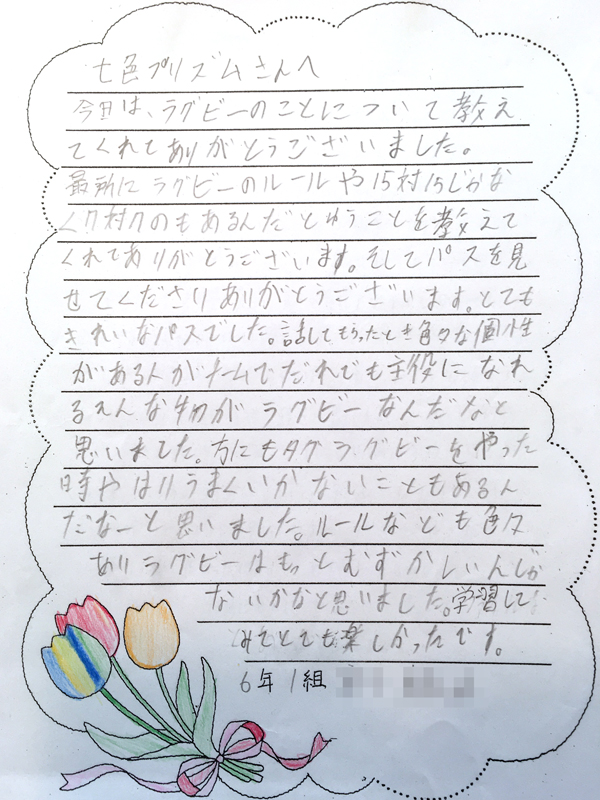 七色プリズムさんへ
今日は、ラグビーのことについて教え
てくれてありがとうございました。
最所にラグビーのルールや15対15じかな
く7対7のもあるんだとゆうことを教えて
くれてありがとうございます。そしてパスを見
せてくださりありがとうございます。とても
きれいなパスでした。話してもらったとき色々な個性
がある人がチームでだれでも主役になれ
る
なものがラグビーなんだなと
思いました。方にもタグラグビーをやった
時やはりうまくいかないこともあるん
だなーと思いました。ルールなども色々
ありラグビーはもっとむずかしいんじゃ
ないかなと思いました。学習して
みてとても楽しかったです。
6年1組